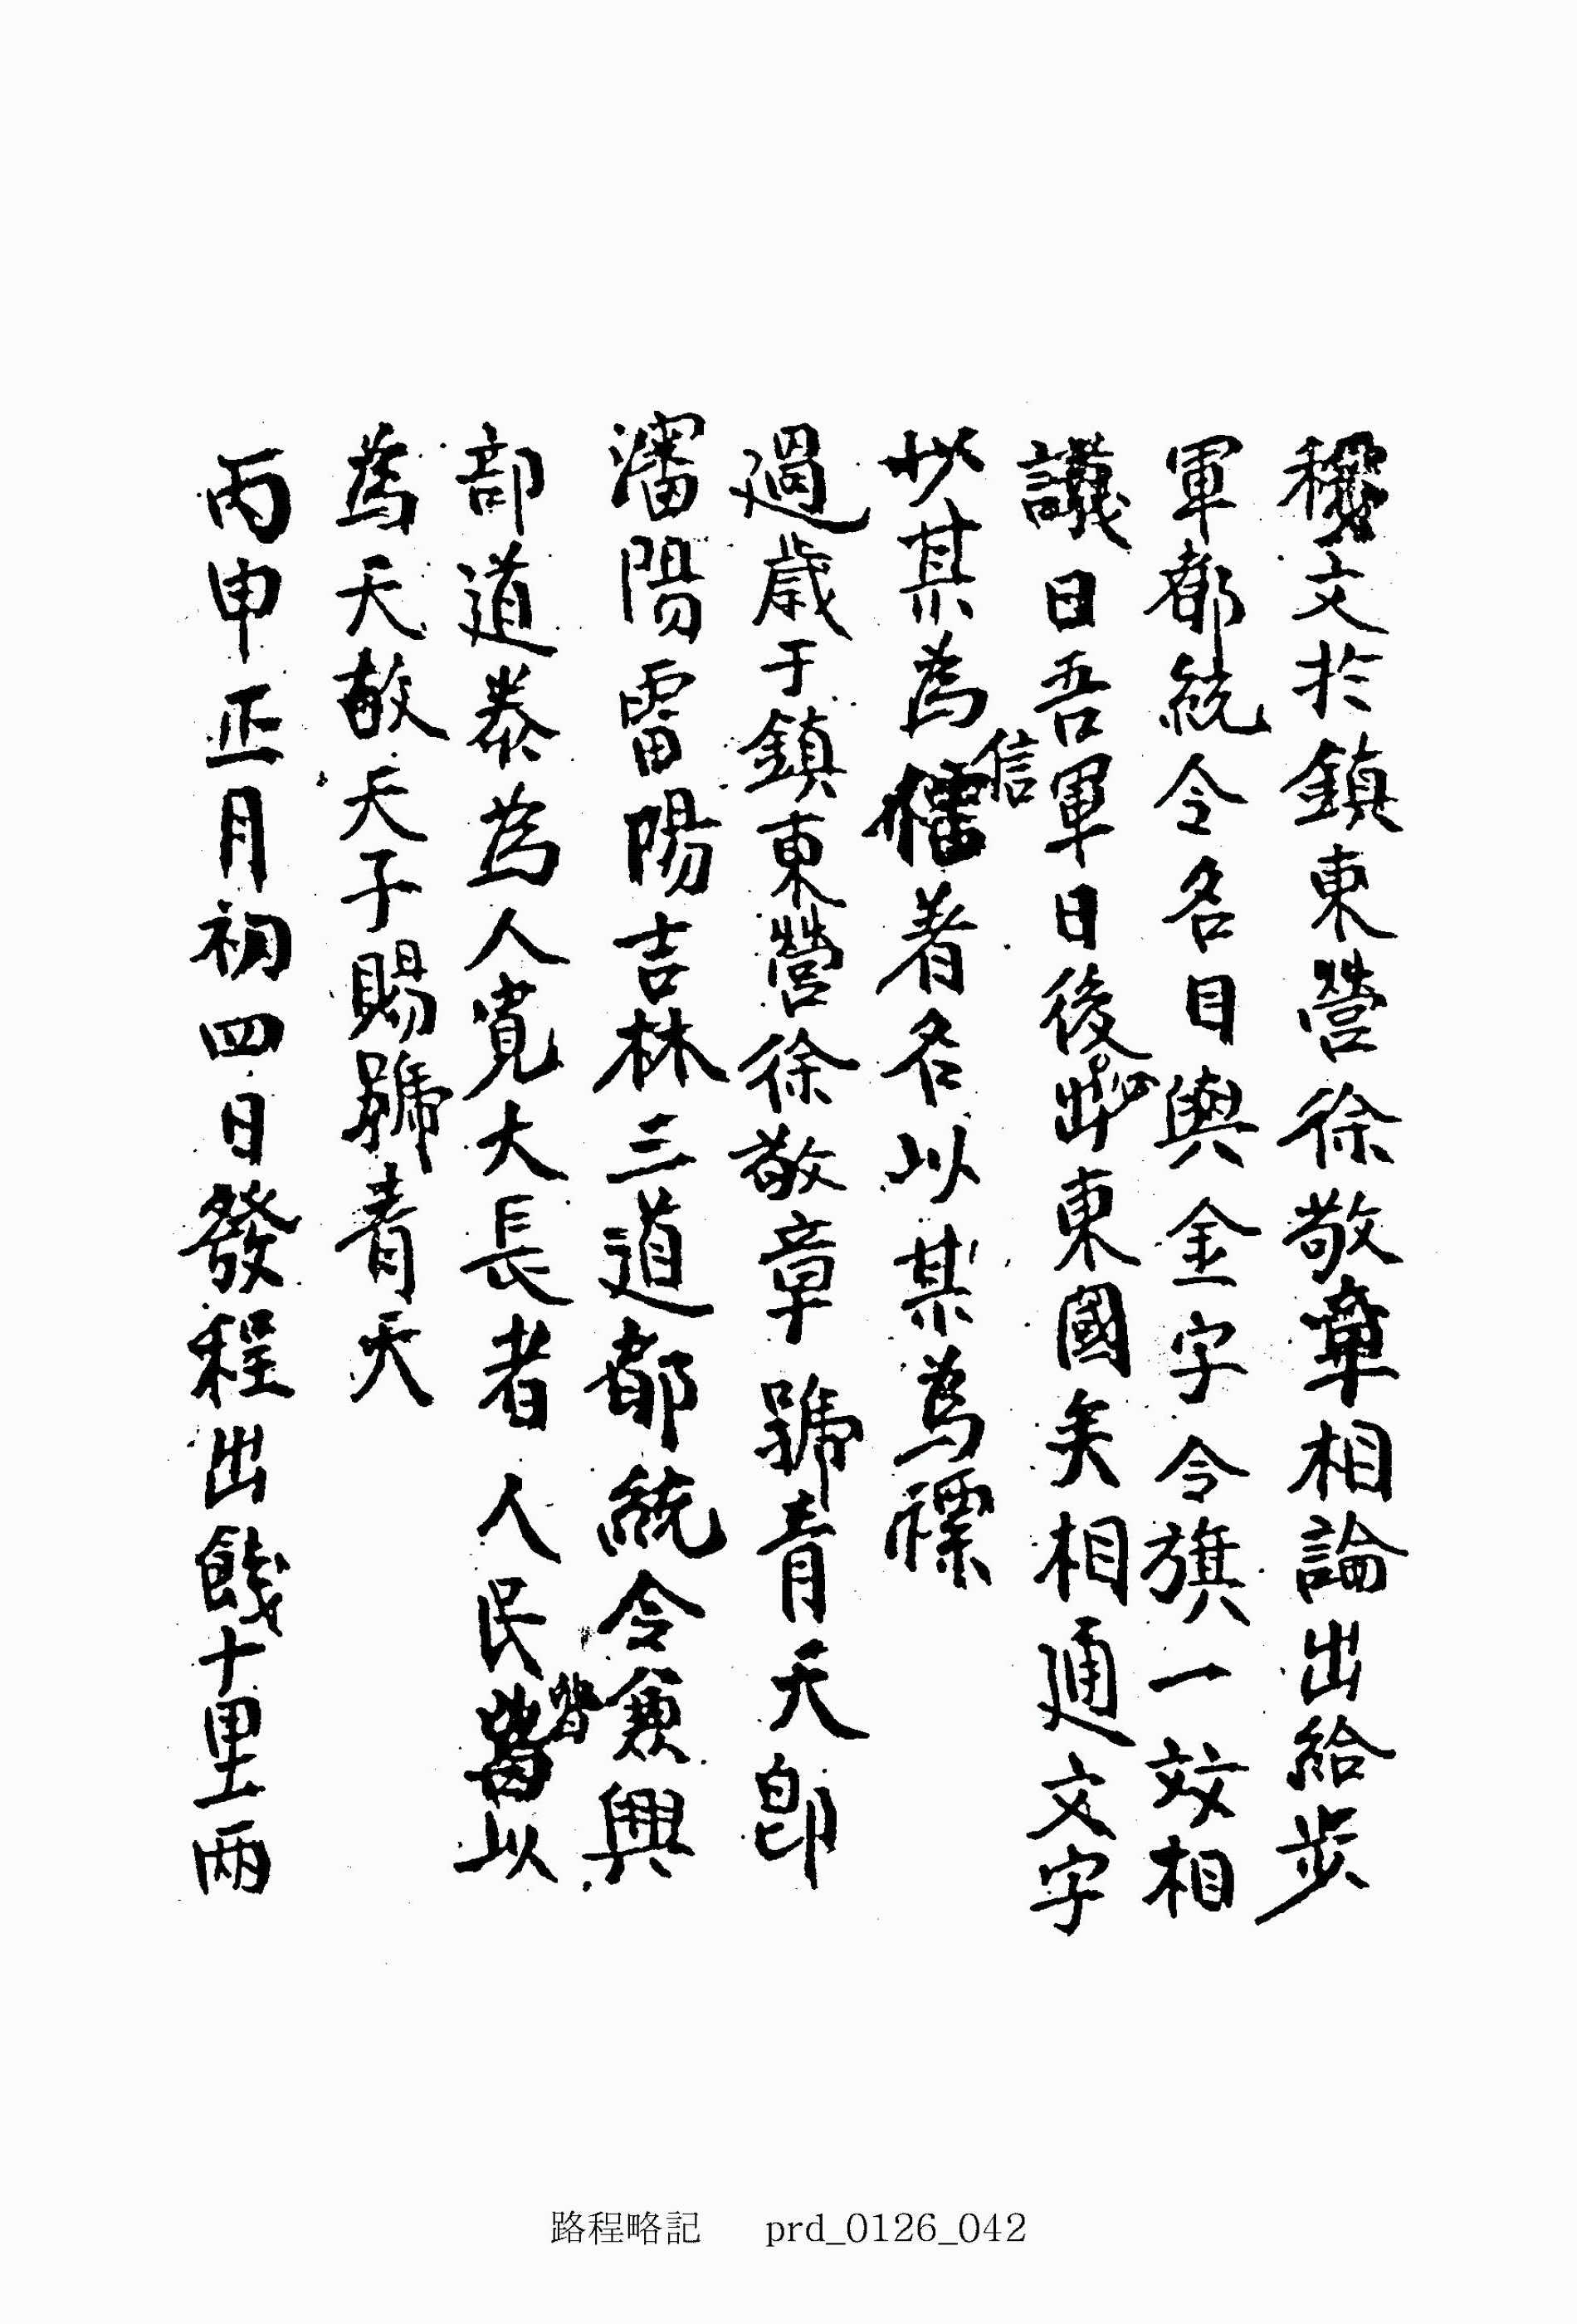 文於鎮東營徐敬章相論出給步
軍都統令名目與金字令旗一效相
議曰吾軍日後出東國矣相通文字
以某為信著名以某為標
過歲于鎮東營徐敬章號青天卽
瀋陽雷陽吉林三道都統令兼興
部道泰為人寬大長者人民皆以
為天敬天子賜號青天
丙申正月初四日發程出餞十里兩
路程略記 prd_0126_042